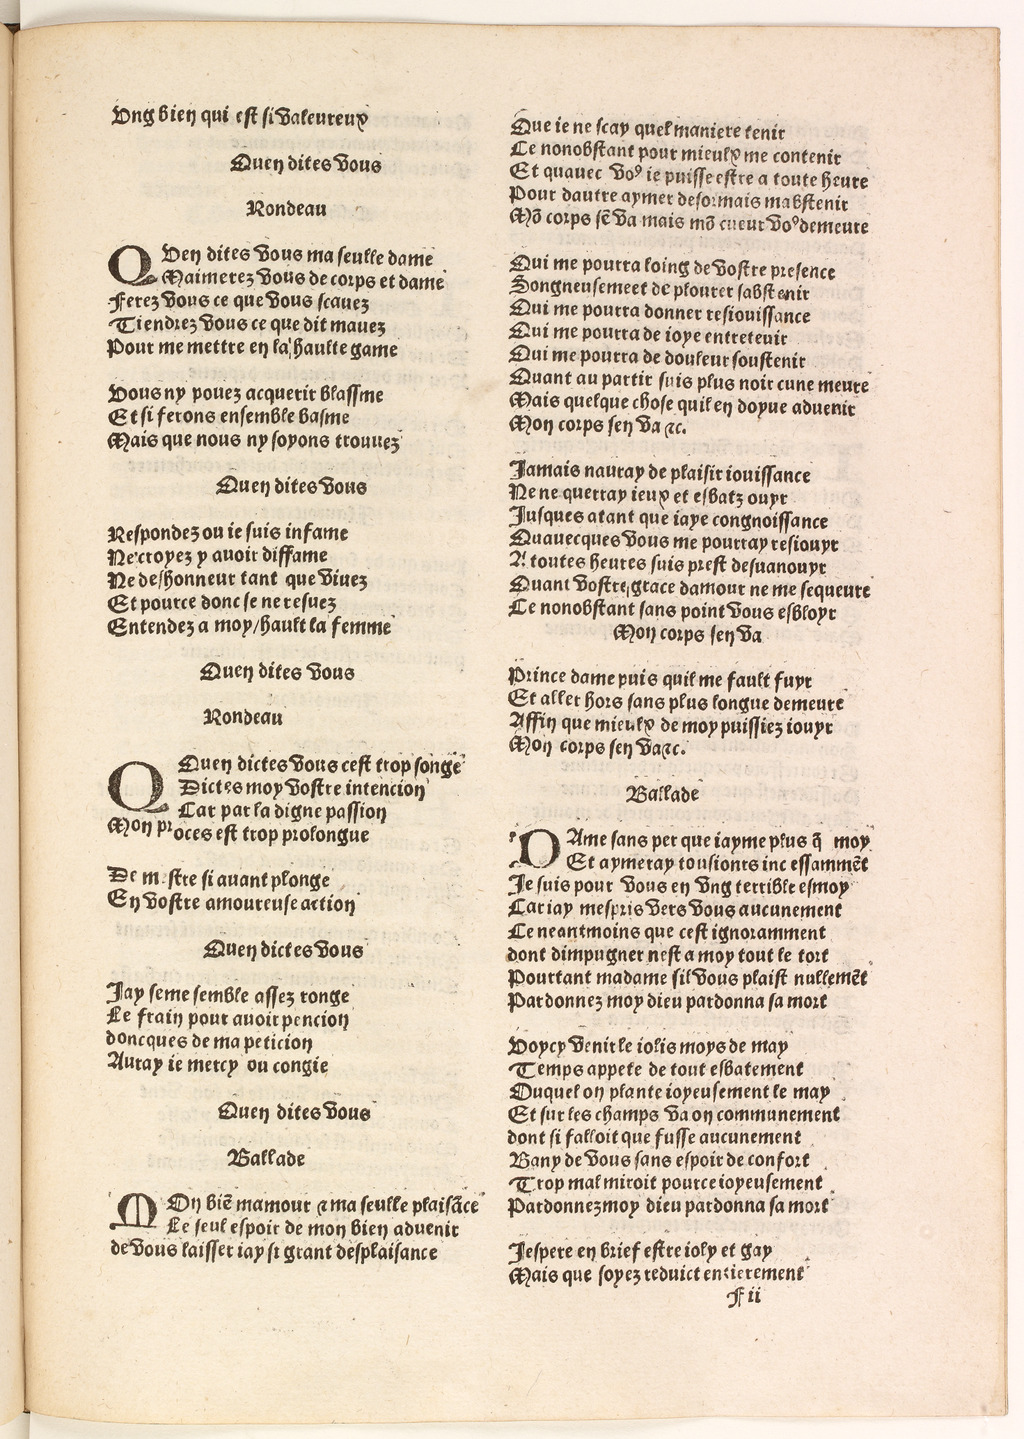 Ung bien qui est si valeureux
Quen dites vous
Rondeau
QUen dites vous ma seulle dame
Maimerez vous de corps et dame
Ferez vous ce que vous scauez
Tiendrez vous ce que dit mauez
Pour me mettre en la haulte game
Vous ny pouez acquerir blassme
Et si ferons ensemble basme
Mais que nous ny soyons trouuez
Quen dites vous
Respondez ou ie suis infame
Ne croyez y auoir diffame
Ne deshonneur tant que viuez
Et pource donc se ne resuez
Entendez a moy/hault la femme
Quen dites vous
Rondeau
QQuen dictes vous cest trop songe
Dictes moy vostre intencion
Car par la digne passion
Mon proces est trop prolongue
De m stre si auant plonge
En vostre amoureuse action
Quen dictes vous
Jay seme semble assez ronge
Le frain pour auoir pencion
doncques de ma peticion
Auray ie mercy ou congie
Quen dites vous
Ballade
MOn biẽ mamour ⁊ ma seulle plaisãce
Le seul espoir de mon bien aduenir
de vous laisser iay si grant desplaisance
Que ie ne scay quel maniere tenir
Ce nonobstant pour mieulx me contenir
Et quauec voꝰ ie puisse estre a toute heure
Pour dautre aymer desormais mabstenir
Mõ corps sẽ va mais mõ cueur voꝰ demeure
Qui me pourra loing de vostre presence
Songneusemeet de plourer sabstenir
Qui me pourra donner resiouissance
Qui me pourra de ioye entreteuir
Qui me pourra de douleur soustenir
Quant au partir suis plus noir cune meure
Mais quelque chose quil en doyue aduenir
Mon corps sen va ⁊c.
Jamais nauray de plaisir iouissance
Ne ne querray ieux et esbatz ouyr
Jusques atant que iaye congnoissance
Quauecques vous me pourray resiouyr
A toutes heures suis prest desuanouyr
Quant vostre grace damour ne me sequeure
Ce nonobstant sans point vous esbloyr
Mon corps sen va
Prince dame puis quil me fault fuyr
Et aller hors sans plus longue demeure
Affin que mieulx de moy puissiez iouyr
Mon corps sen va⁊c.
Ballade
DAme sans per que iayme plus q̃ moy
Et aymeray tousionrs inc essammẽt
Je suis pour vous en ung terrible esmoy
Car iay mespris vers vous aucunement
Ce neantmoins que cest ignoramment
dont dimpugner nest a moy tout le tort
Pourtant madame sil vous plaist nullemẽt
Pardonnez moy dieu pardonna sa mort
Voycy venir le iolis moys de may
Temps appete de tout esbatement
Ouquel on plante ioyeusement le may
Et sur les champs va on communement
dont si falloit que fusse aucunement
Bany de vous sans espoir de confort
Trop mal miroit pource ioyeusement
Pardonnez moy dieu pardonna sa mort
Jespere en brief estre ioly et gay
Mais que soyez reduict entierement
F ii